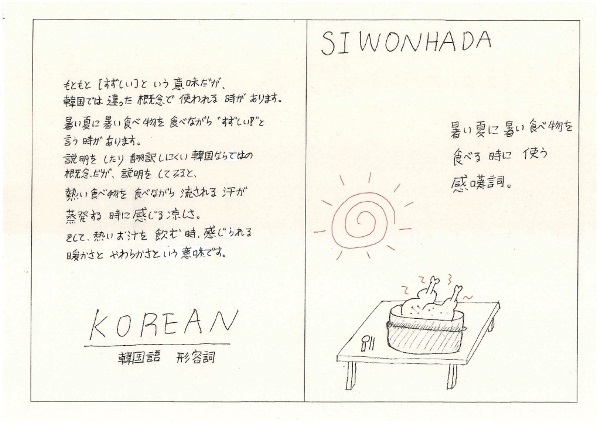 もともと [すずしい] という 意味だが、
韓国では 違った 概念で 使われる 時が あります。
暑い夏に 暑い食べ物を 食べながら "すずしい!" と
言う 時が あります。
説明を したり 翻訳しにくい 韓国ならではの
概念だが、説明を してみると、
熱い食べ物を 食べながら 流される 汗が
蒸発ね 時に 感じる 涼しさ。
そして、熱いお汁を 飲む 時、感じられる
暖かさと やわらかさという 意味です。
KOREAN
韓国語 形容詞
SIWONHADA
暑い 夏に 暑い 食べ物を
食べる 時に 使う
感嘆詞。